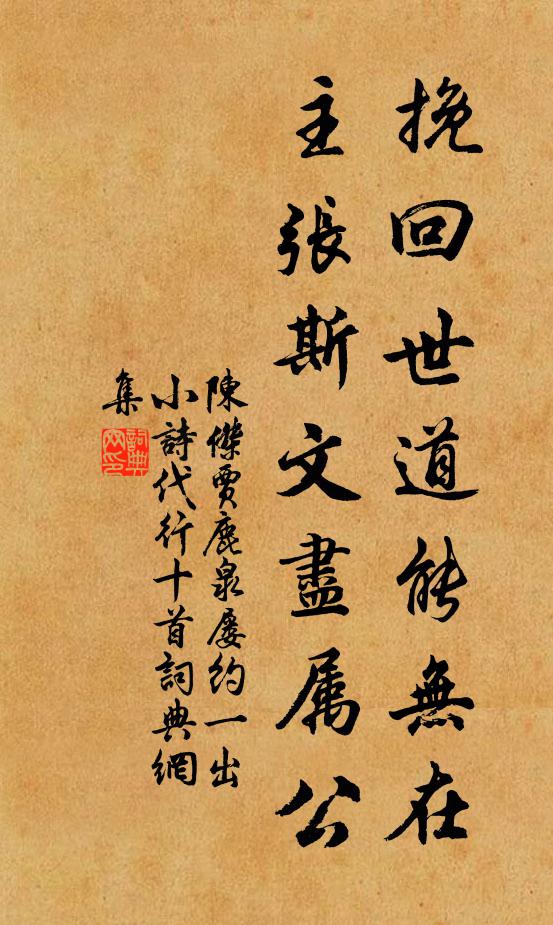 挽回世道能無在
主張斯文盡属公
陳傑賈鹿泉屡約一出
小詩代行十首詞典網
集
詞典網印